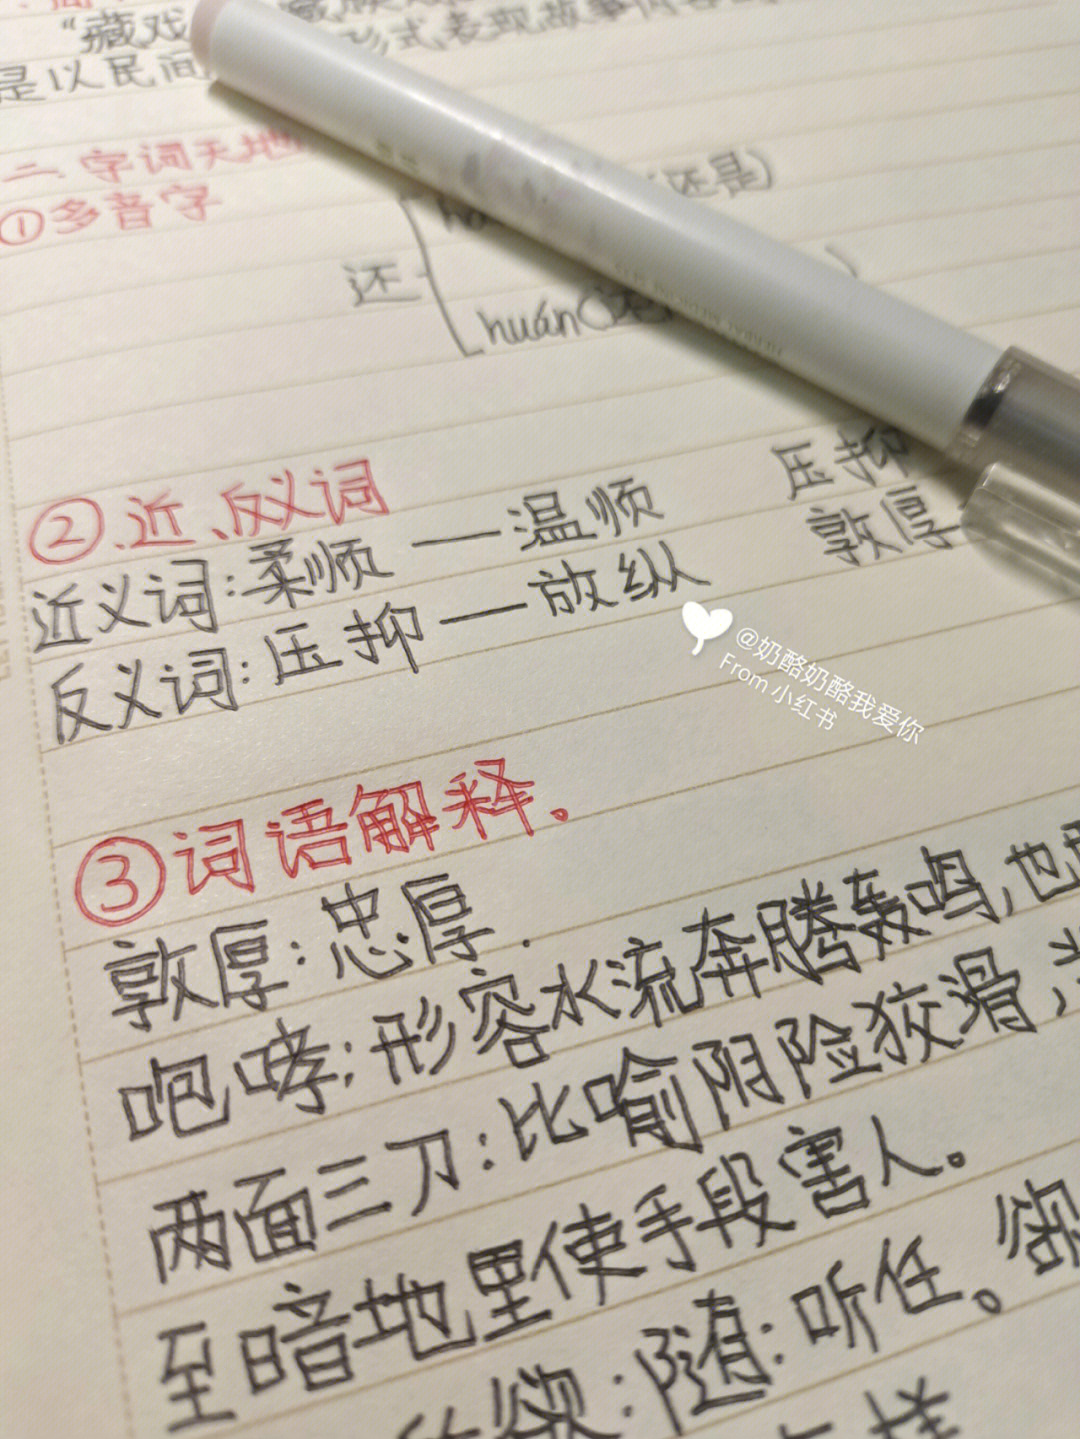 “藏戏
形式表现故事内容
是以民间
二、字词天地
①多音字
(还是)
还
huán(还
②.近、反义词
近义词:柔顺——温顺
压抑
反义词:压抑——放纵
敦厚
@奶酪奶酪我爱你
From 小红书
③词语解释。
敦厚:忠厚.
咆哮:形容水流奔腾轰鸣,也
两面三刀:比喻阴险狡滑,
至暗地里使手段害人。
欲:随:听任。
样